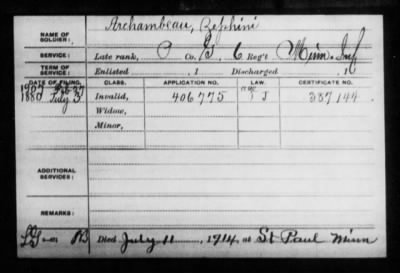 NAME OF SOLDIER: Archambeau, Zephini
SERVICE: Late rank, P Co. G, 6 Reg't Minn. Inf
TERM OF SERVICE: Enlisted , 1 Discharged , 1
DATE OF FILING. CLASS. APPLICATION NO. LAW. CERTIFICATE NO.
1880 July 3 Invalid, 406775 J 337144
Widow,
Minor,
ADDITIONAL SERVICES:
REMARKS:
Died July 11, 1914, at St Paul Minn